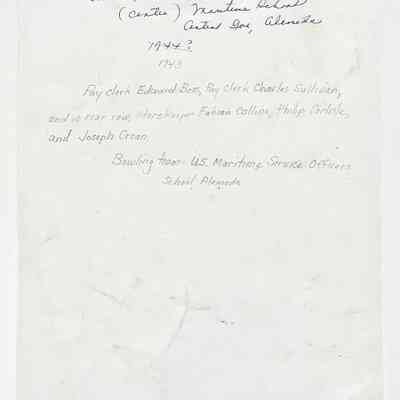 (Center) Maritime School
Central Ave, Alameda
1944?
1943
Pay clerk Edward Bess, Pay clerk Charles Sullivan,
and in rear row, storekeeper Fabian Collins, Philip Carlisle,
and Joseph Croan
Bowling team - U.S. Maritime Service Officers
School, Alameda